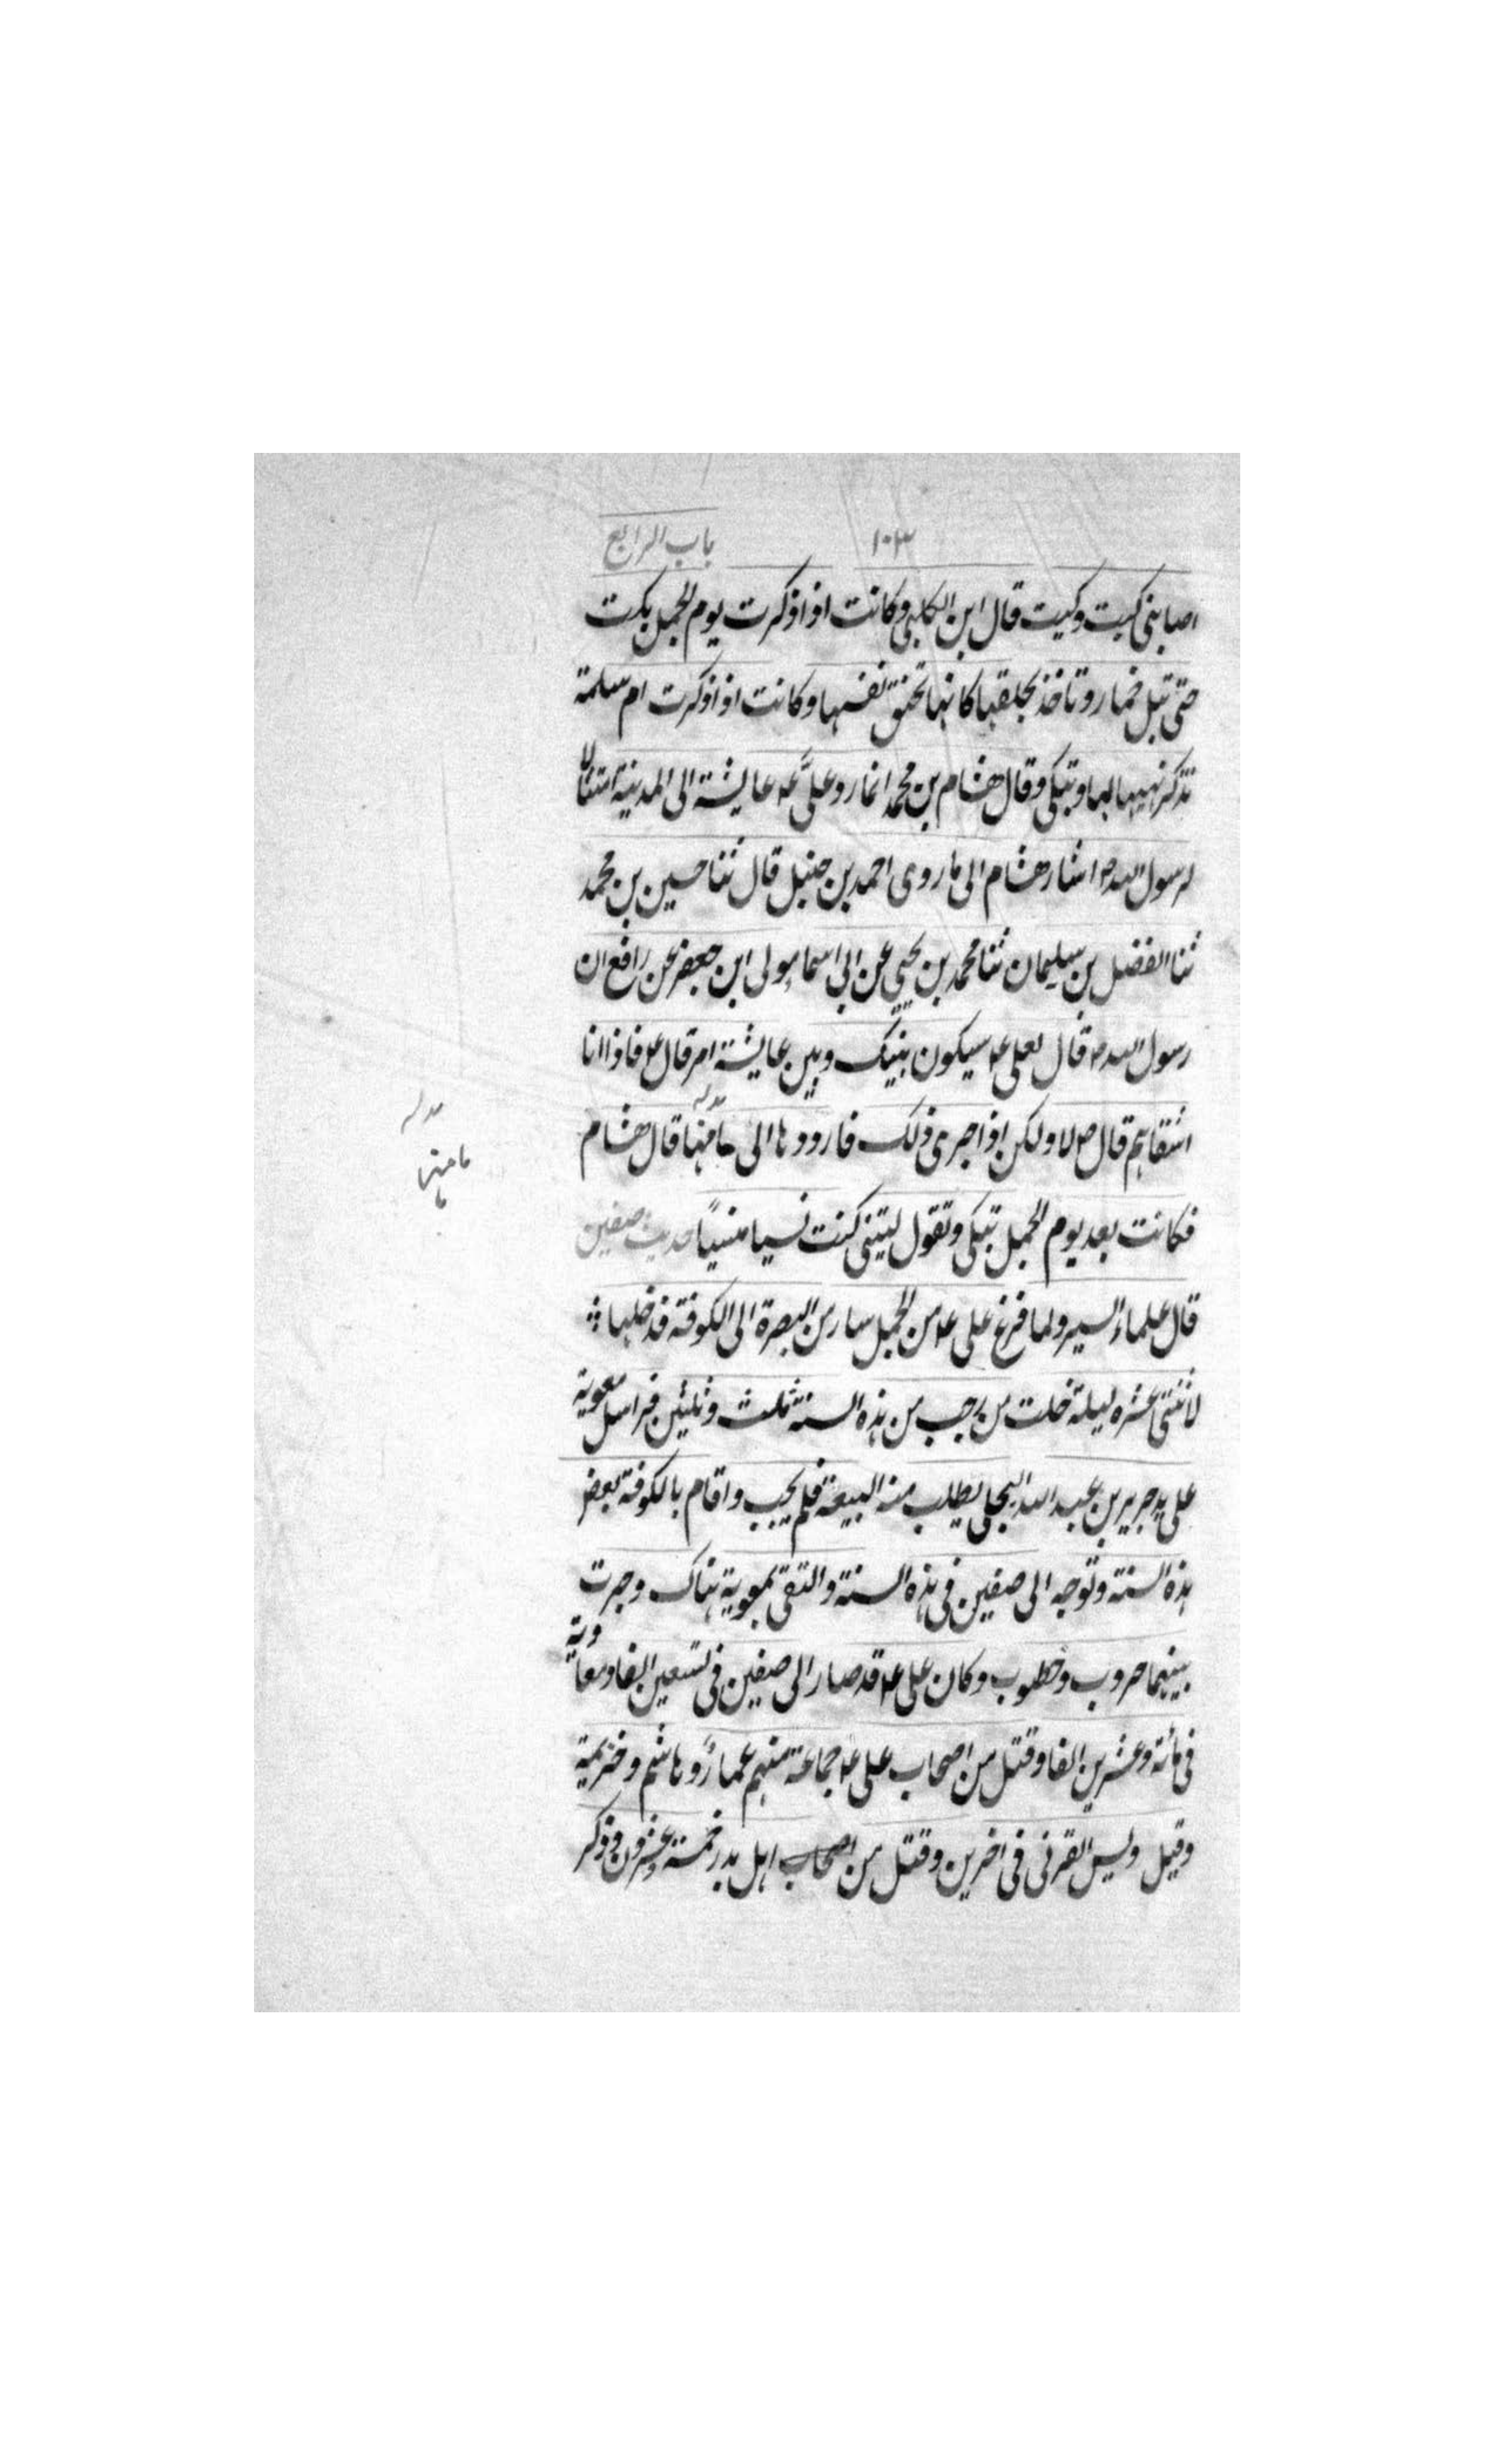 ١٠٣ باب الرابع
اصابنی کیت وکیت قال ابن الکلبی وکانت اذا ذکرت یوم الجمل بکت
حتی تبل خمار وتاخذ بحلقها کانها تخنق نفسها وکانت اذا ذکرت ام سلمة
تذکر نهیها لها وتبکی وقال هشام بن محمد انما رد علیّ ع عایشة الی المدینة امتثالا
لرسول الله ص اشار هشام الی ما روی احمد بن حنبل قال ثنا حسین بن محمد
ثنا الفضیل بن سلیمان ثنا محمد بن یحیی عن ابی اسما مولی ابن جعفر عن رافع ان
رسول الله ص قال لعلی ع سیکون بینک وبین عایشة امر قال ع فاذا انا
اشقاهم قال ص لا ولکن اذا جری ذلک فارددها الی مامنها قال هشام
مامنها
فکانت بعد یوم الجمل تبکی وتقول لیتنی کنت نسیا منسیًا حدیث صفین
قال علماء السیر ولما فرغ علی ع من الجمل سار من البصرة الی الکوفة فدخلها
لاثنتی عشره لیلة خلت من رجب من هذه السنة ثلث وثلثین فراسل معویة
علی ید جریر بن عبد الله البجلی یطلب منه البیعة فلم یجب واقام بالکوفة بعض
هذه السنة وتوجه الی صفین فی هذه السنة والتقی بمعویة هناک وجرت
بینهما حروب وخطوب وکان علی ع قد صار الی صفین فی تسعین الفا ومعاویة
فی مائة وعشرین الفا وقتل من اصحاب علی ع جماعة منهم عمار وهاشم وخزیمة
وقیل ولیس القرنی فی اخرین وقتل من اصحاب اهل بدر خمسة وعشرون وذکر